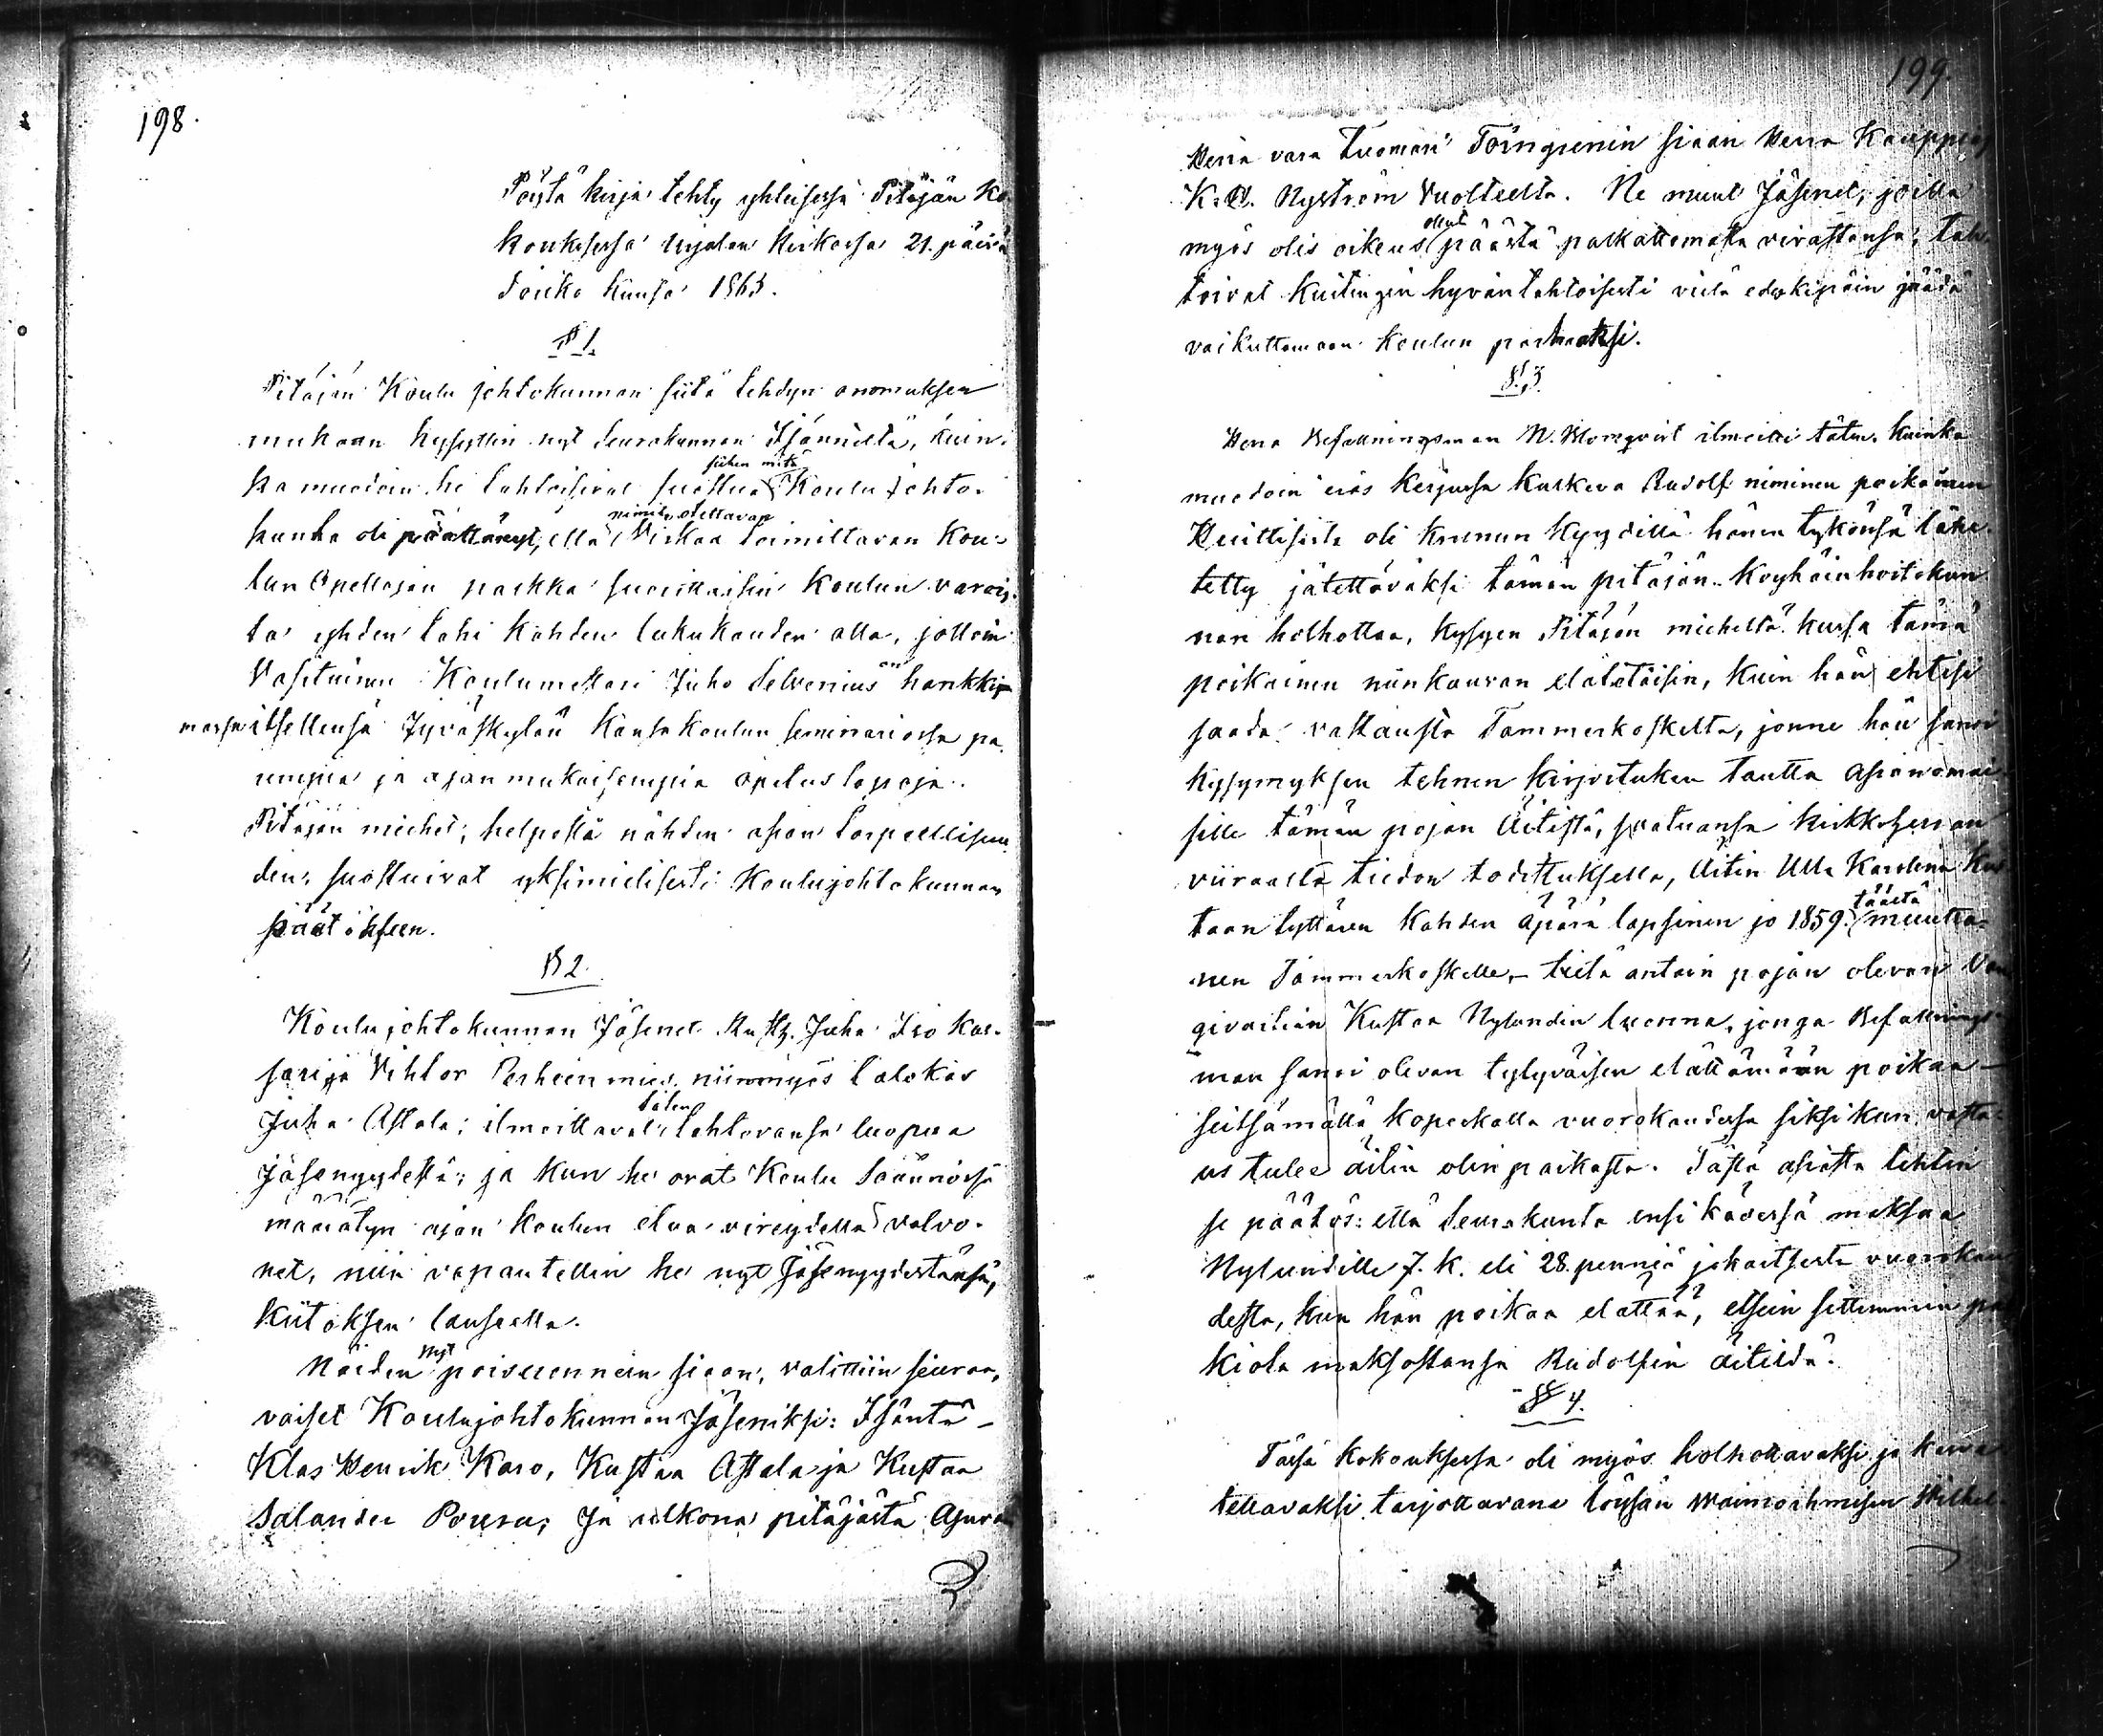 198.
Pöytä kirja tehty yhteisessä Pitäjän Ko-
kouksessa Urjalan Kirkossa 21. päivä
Touko kuusa 1863.
§ 1.
Pitäjän Koulu johtokunnan siitä tehdyn anomuksen
mukaan kysyttiin nyt Seurakunnan Isänniltä, kuin-
ka muodoin he tahtoisivat suostua siihen mitä Koulu johto-
kunta oli päättänyt, että nimit. otettavan Virkaa toimittavan Kou-
lun Opettajan palkka suorittaisiin Koulun varois-
ta yhden tahi kahden lukukauden alla, jolloin
Vasituinen Koulumestari Juho Selvenius on hankki-
massa itsellensä Jyväskylän Kansakoulun seminariossa pa-
rempia ja ajanmukaisempia opetus tapoja.
Pitäjän miehet, helposta nähden asian tarpeellisuu-
den, suostuivat yksimielisesti Koulujohtokunnan
päätökseen.
§ 2.
Koulujohtokunnan Jäsenet Rusth. Juha Iso Kas-
sari ja Vihtor Perheenmies niinmyös talokas
Juha Astala; ilmoittavat täten tahtovansa luopua
Jäsenyydestä; ja kun he ovat Koulu Säännöissä
määrätyn ajan koulun etua vireydellä valvo-
net, niin vapautettiin he nyt Jäsenyydestänsä,
kiitoksen lauseella.
Näiden Nyt poiseronneiden siaan, valittiin seuraa-
vaiset Koulujohtokunnan Jäseniksi: Isäntä
Klas Henrik Karo, Kustaa Astala ja Kustaa
Salander Porra; Ja ulkona pitäjästä Asuva
199.
Herra vara Tuomari Törngrenin siaan Herra Kauppias
K. H. Nyström Vuolteelta. Ne muut Jäsenet, joilla
myös olis oikeus ollut päästä palkattomasta virastansa, tah-
toivat kuitengin hyväntahtoisesti vielä edeskipäin jäädä
vaikuttamaan koulun parhaaksi.
§ 3.
Herra Befallningsman N. Blomqvist ilmoitti täten, kuinka
muodoin eräs kerjuussa kulkeva Rudolf niminen poikainen
Huittisista oli Krunun Kyydillä hänen tykönsä lähe-
tetty jätettäväksi tämän pitäjän Köyhäinhoitokun-
nan holhottaa, kysyen Pitäjän miehiltä kussa tämä
poikainen niinkauvan elätetäisin, kuin hän ehtisi
saada vastausta Tammerkoskelta, jonne hän sanoi
kysymyksen tehnen kirjoituksen kautta asianomai-
sille tämän pojan Äitistä, saatuansa kirkkoherran
viraalta tiedon todistuksella, Äitin Ulla Karolina Kus-
taan tyttären kahden äpärä lapsinen jo 1859. täältä muutta-
nen Tammerkoskelle, – tietä antain pojan olevan Van-
givartian Kustaa Nylundin luonna, jonga Befallnings-
man sanoi olevan tytyväisen elättämään poikaa –
seitsämällä kopeekalla vuorokaudessa siksi kun vasta-
us tulee äitin olinpaikasta. Tästä asiasta tehtiin
se päätös: että Seurakunta ensi kädessä maksaa
Nylundille 7. k. eli 28. penniä jokaitsesta vuorokau-
desta, kun hän poikaa elättää, etsein sittemmin pa-
kiola maksostansa Rudolfin äitildä.
§ 4.
Tässä kokouksessa oli myös holhottavaksi ja kasva-
tettavaksi tarjottavana löysän waimoihmisen Wilhel-